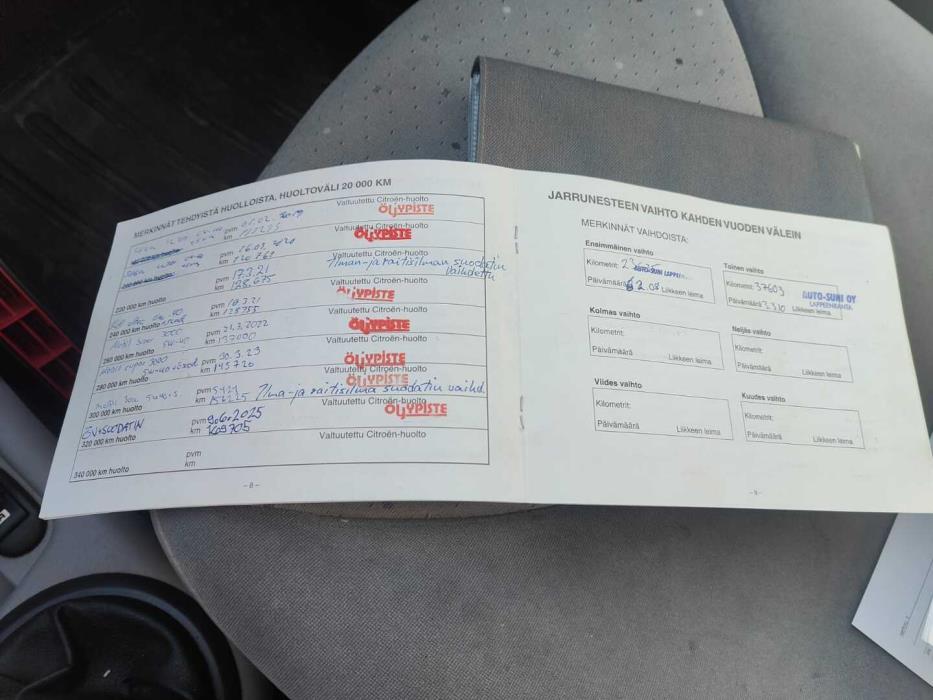 MERKINNÄT TEHDYISTÄ HUOLLOISTA, HUOLTOVÄLI 20 000 KM
Valtuutettu Citroën-huolto
ÖLJYPISTE
pvm 01.02.
km
Valtuutettu Citroën-huolto
ÖLJYPISTE
pvm 16.03.
km 120 761
Valtuutettu Citroën-huolto
Ilman- ja raitisilman suodatin
vaihdettu
pvm 17.3.21
km 128.675
220 000 km huolto
Valtuutettu Citroën-huolto
ÖLJYPISTE
pvm 18.3.21
km 128755
240 000 km huolto
Valtuutettu Citroën-huolto
ÖLJYPISTE
pvm 21.3.2022
km 137000
260 000 km huolto
Valtuutettu Citroën-huolto
ÖLJYPISTE
pvm 30.3.23
km 145720
280 000 km huolto
Valtuutettu Citroën-huolto
ÖLJYPISTE
pvm
km
Ilma- ja raitisilma suodatin vaihd.
300 000 km huolto
Valtuutettu Citroën-huolto
ÖLJYPISTE
ÖV+SUODATIN
pvm 9.6.2025
km 169705
320 000 km huolto
Valtuutettu Citroën-huolto
pvm
km
340 000 km huolto
- 8 -
JARRUNESTEEN VAIHTO KAHDEN VUODEN VÄLEIN
MERKINNÄT VAIHDOISTA:
Ensimmäinen vaihto
Kilometrit:
AUTO-SUNI
Päivämäärä
Liikkeen leima
Toinen vaihto
Kilometrit: 37609
AUTO-SUNI OY
LAPPEENRANTA
Päivämäärä 2.3.10
Liikkeen leima
Kolmas vaihto
Kilometrit:
Päivämäärä
Liikkeen leima
Neljäs vaihto
Kilometrit:
Päivämäärä
Liikkeen leima
Viides vaihto
Kilometrit:
Päivämäärä
Liikkeen leima
Kuudes vaihto
Kilometrit:
Päivämäärä
Liikkeen leima
- 9 -